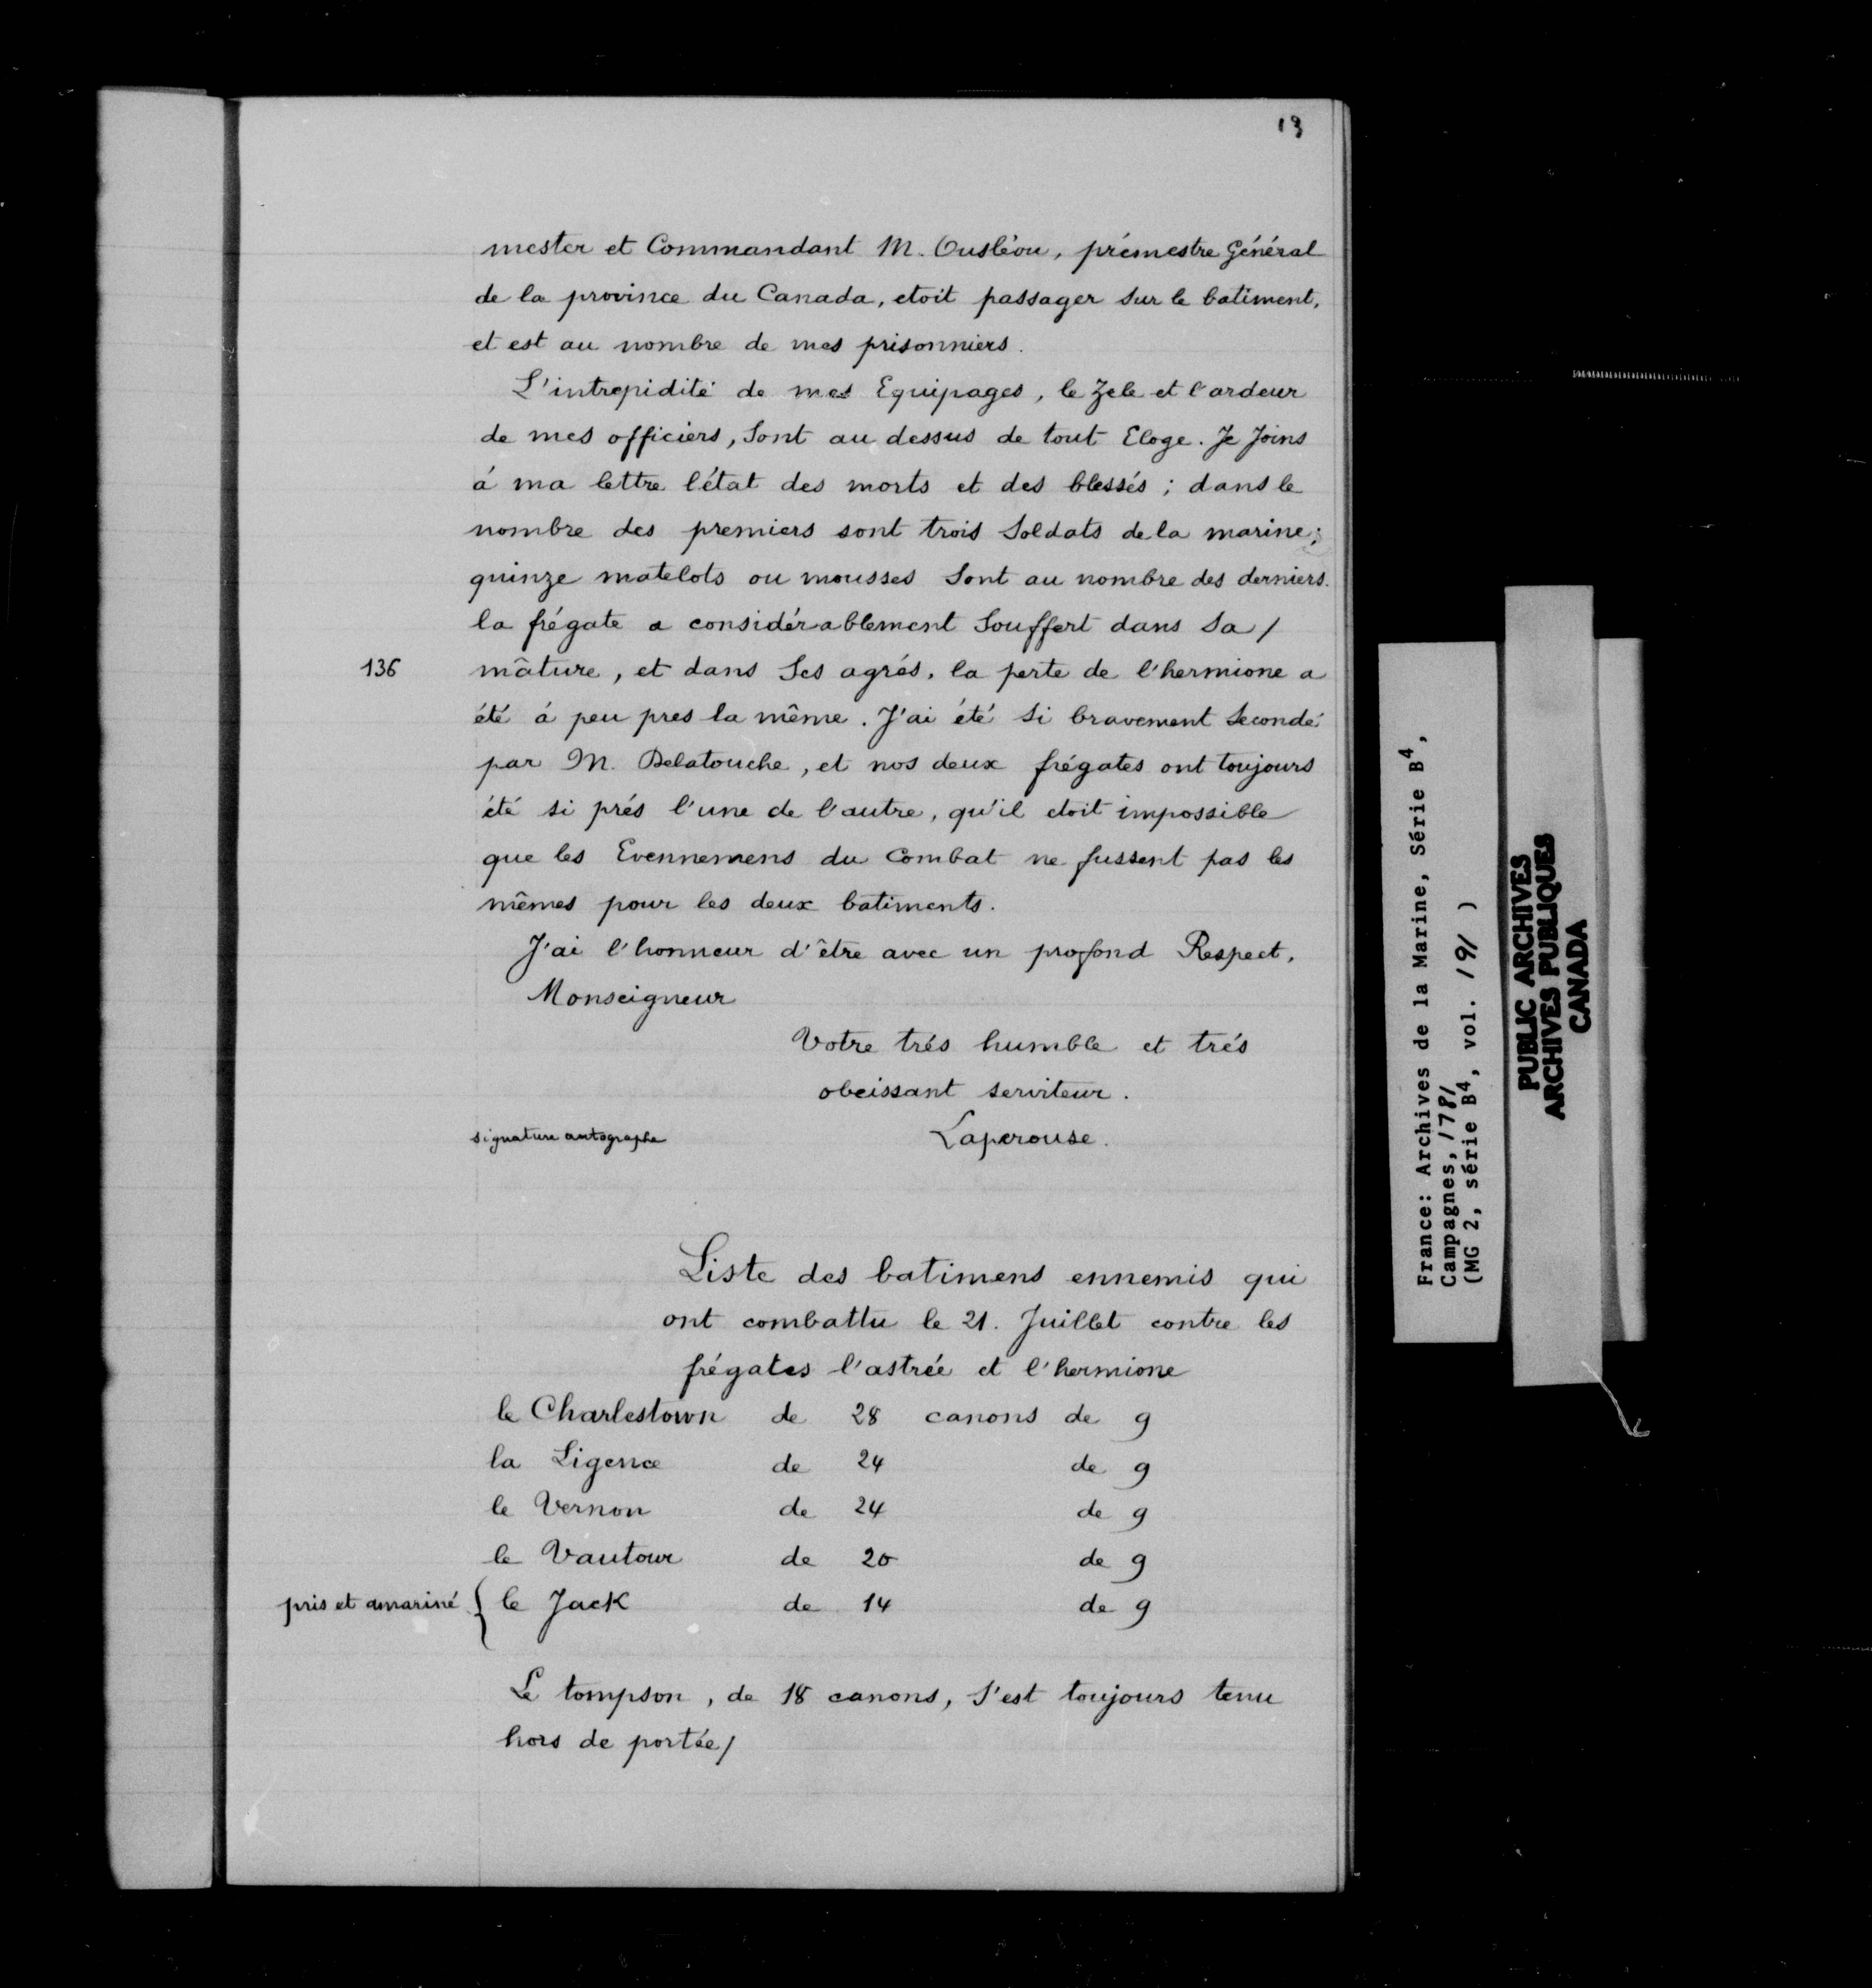 13
mester et Commandant M. Ousléou, prémestre Général
de la province du Canada, etoit passager sur le batiment,
et est au nombre de mes prisonniers.
L'intrepidité de mes Equipages, le Zele et l'ardeur
de mes officiers, sont au dessus de tout Eloge. Je Joins
á ma lettre l'état des morts et des blessés ; dans le
nombre des premiers sont trois soldats de la marine;
quinze matelots ou mousses sont au nombre des derniers.
la frégate a considérablement souffert dans sa /
136 mâture, et dans ses agrés, la perte de l'hermione a
été á peu pres la même. J'ai été si bravement secondé
par M. Delatouche, et nos deux frégates ont toujours
été si prés l'une de l'autre, qu'il etoit impossible
que les Evennemens du Combat ne fussent pas les
mêmes pour les deux batiments.
J'ai l'honneur d'être avec un profond Respect,
Monseigneur
Votre trés humble et trés
obeissant serviteur.
signature autographe Laperouse.
Liste des batimens ennemis qui
ont combattu le 21. Juillet contre les
frégates l'astrée et l'hermione
le Charlestown de 28 canons de 9
la Ligence de 24 de 9
le Vernon de 24 de 9
le Vautour de 20 de 9
pris et amariné { le Jack de 14 de 9
Le tompson, de 18 canons, s'est toujours tenu
hors de portée /
France: Archives de la Marine, Série B4,
Campagnes, 1781
(MG 2, série B4, vol. 191 )
PUBLIC ARCHIVES
ARCHIVES PUBLIQUES
CANADA